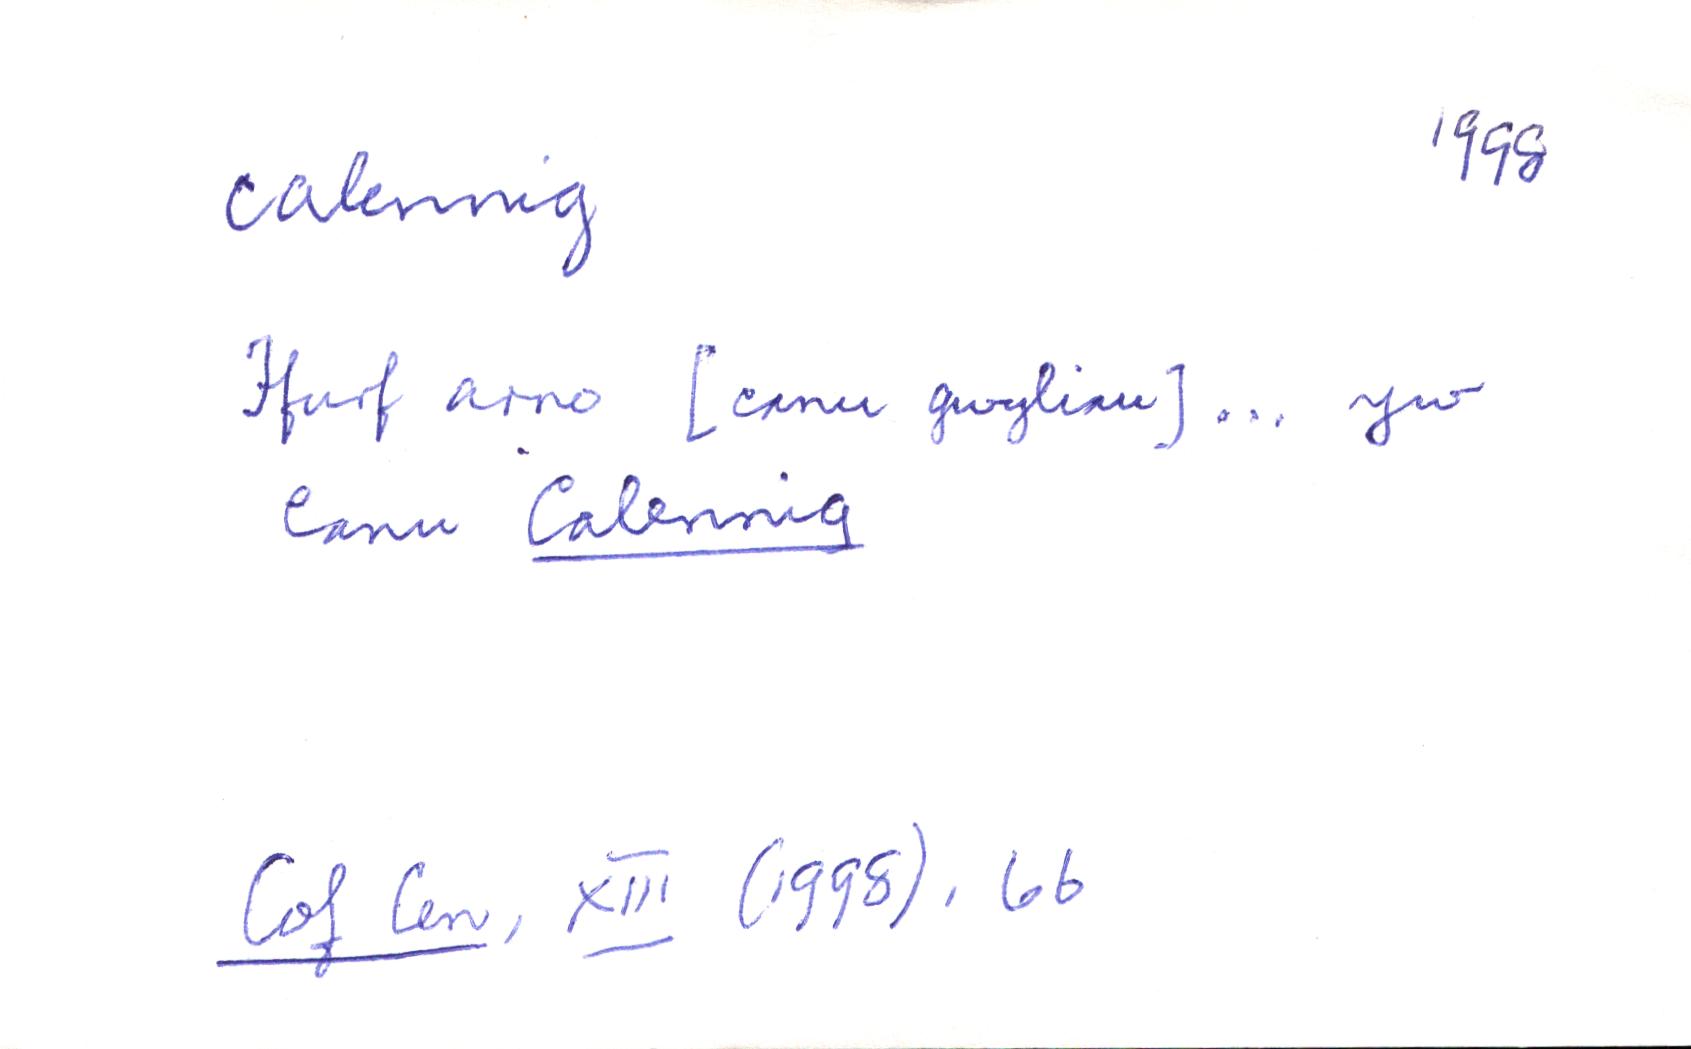 1998
calennig
Ffurf arno [canu gwyliau] ... yw
canu Calennig
Cof Cen, XIII (1998), 66